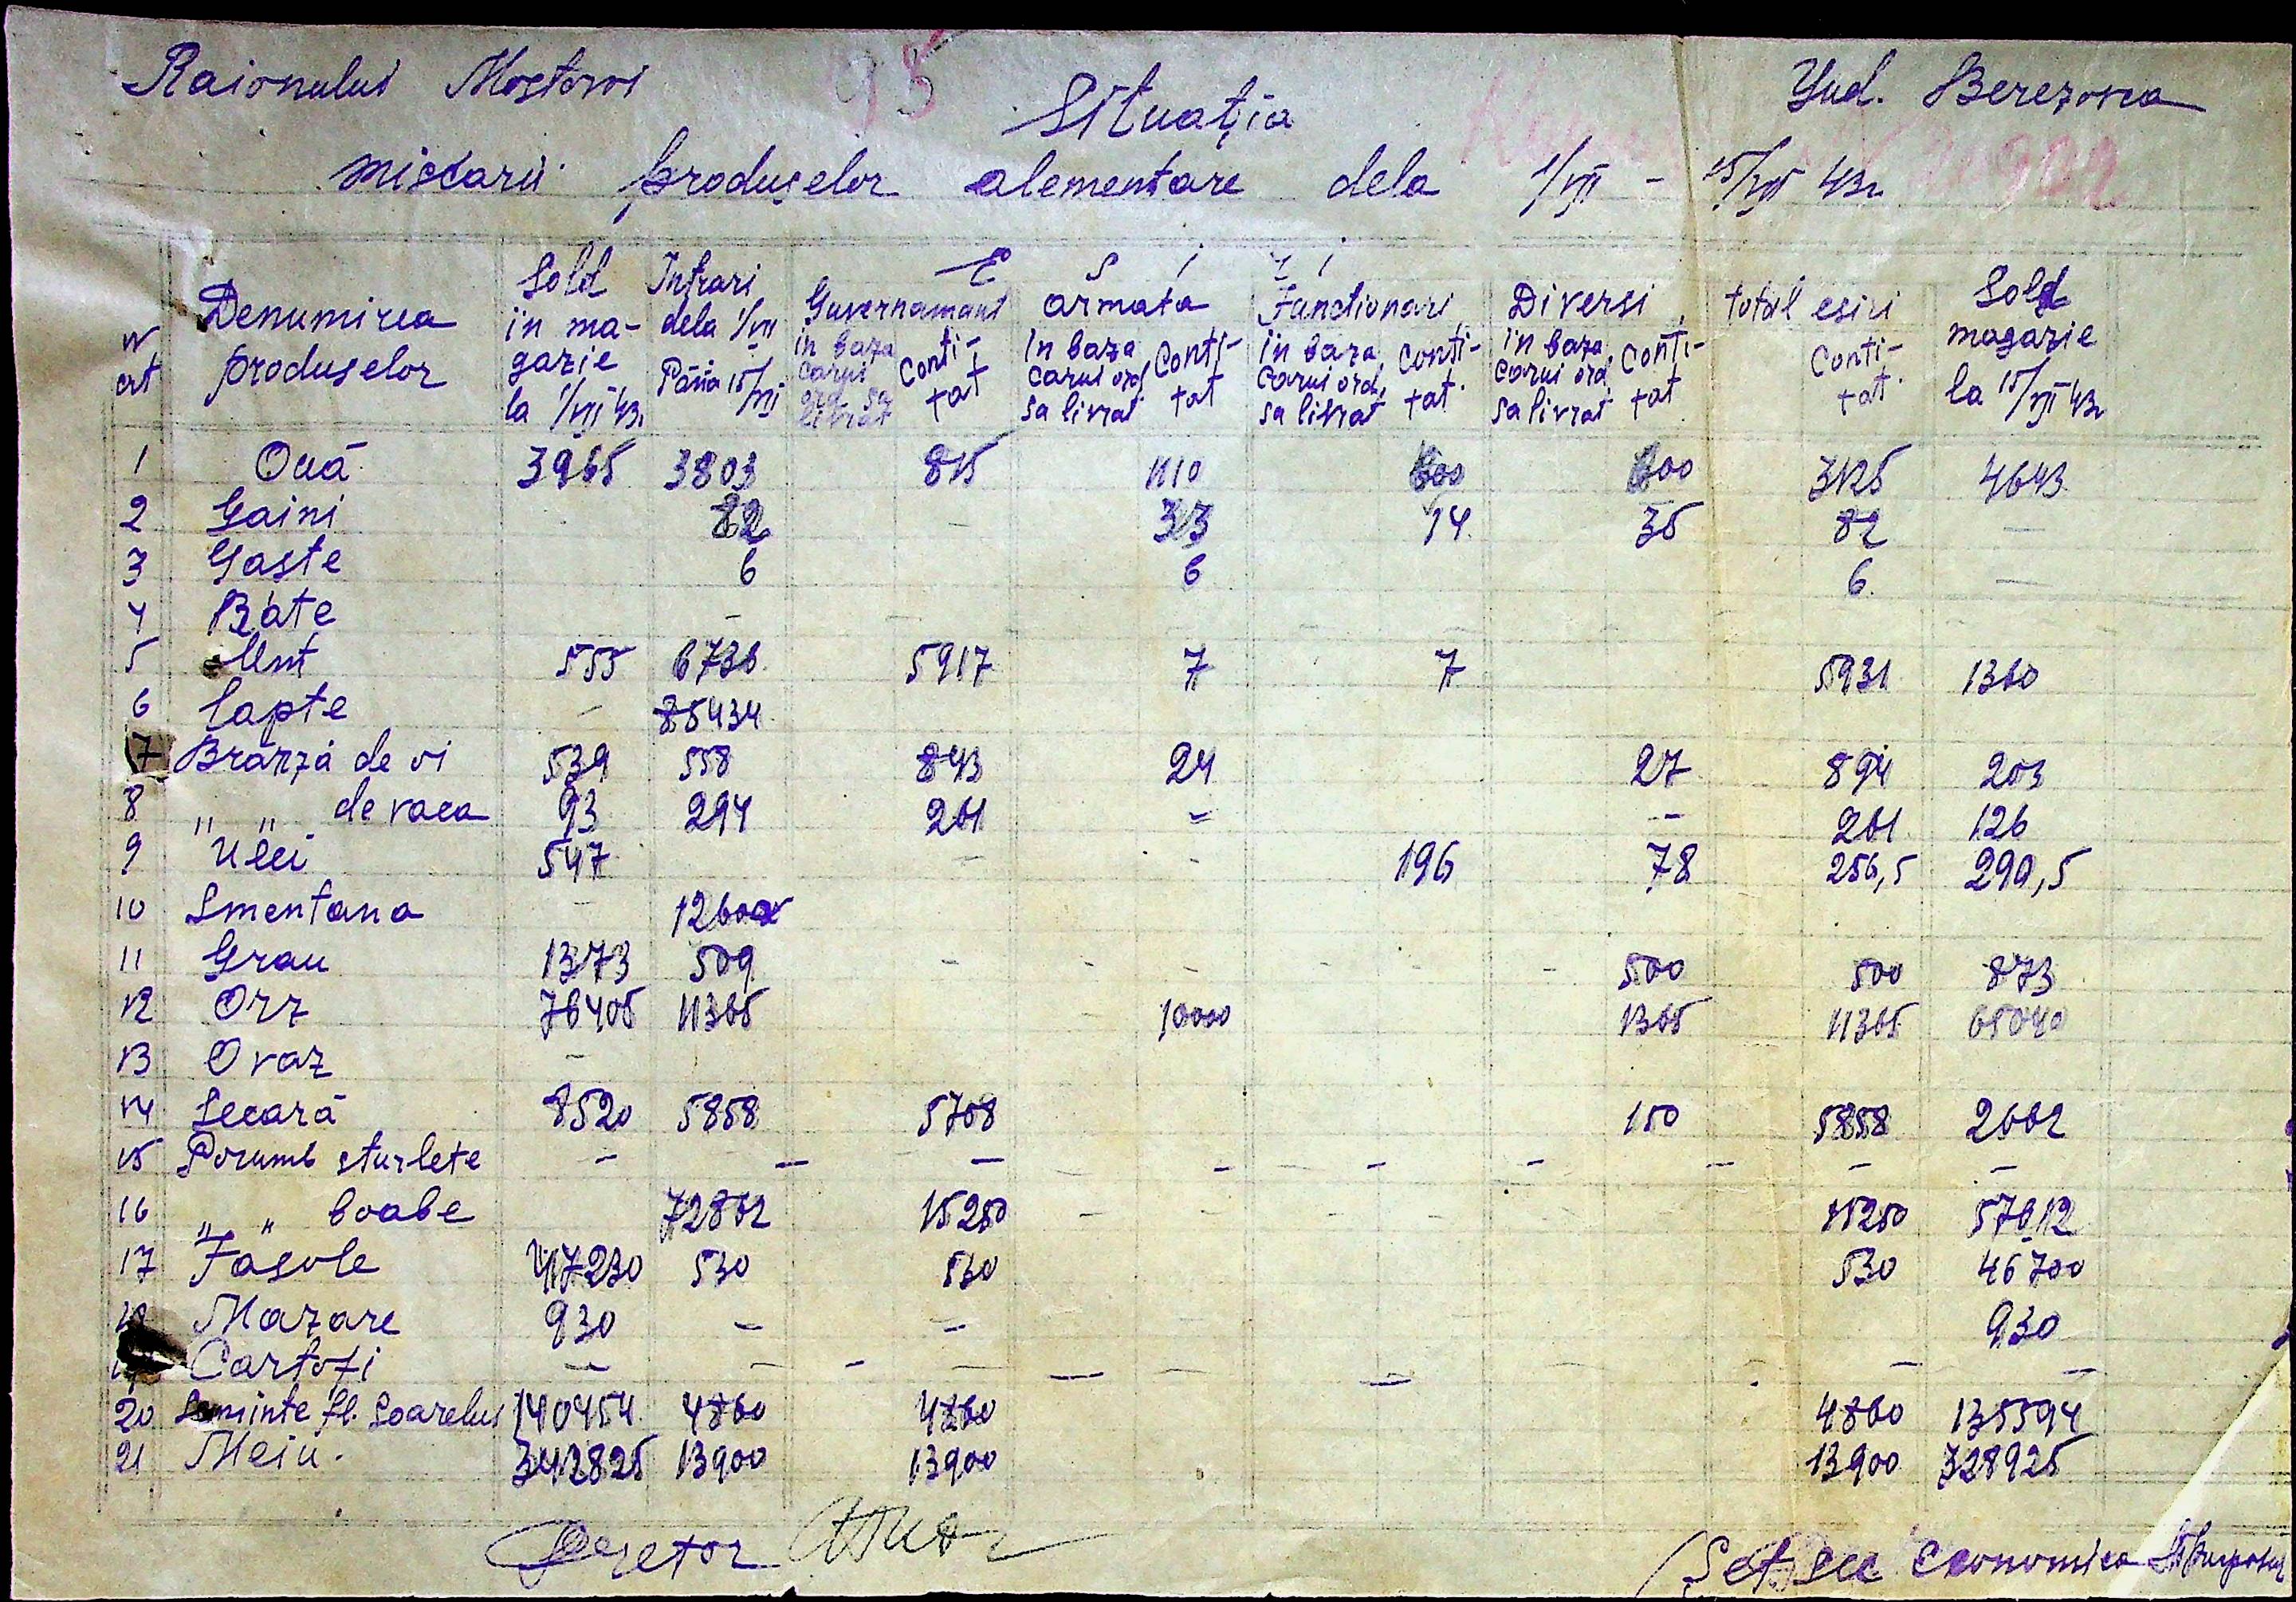 Raionului Mostovoi
95
Jud. Berezovca
Situaţia
miscarii produselor alementare dela 1/VII - 15/VII 43r
Nr crt
Denumirea produselor
Sold in magazie la 1/VII 43r
Intrari dela 1/VII Pănă 15/VII
E s i r i
Guvernamant
in baza carui ord sa livrat
Contitat
armata
in baza carui ord sa livrat
Contitat
Functionari
in baza carui ord, sa livrat
Contitat
Diversi
in baza carui ord sa livrat
Contitat
total esiri
Contitat
Sold magazie la 15/VII 43r
1 Ouă 3965 3803 815 1110 600 600 3125 4643
2 Gaini 82 - 33 14 35 82 -
3 Gaşte 6 6 6 -
4 Rate -
5 Unt 555 6736 5917 7 7 5931 1360
6 Lapte - 85434
7 Brănză de oi 539 558 843 24 27 894 203
8 " " de vaca 93 294 261 = -- 261 126
9 Ulei 547 - - 196 78 256,5 290,5
10 Smentana - 12600
11 Grau 1373 509 - - - - - - 500 500 873
12 Orz 76405 11365 10000 1365 11365 65040
13 Ovaz -
14 Secară 8520 5858 5708 150 5858 2662
15 Porumb sturlete - - - - - - - - -
16 " " boabe 72862 15250 - - - - - 15250 57612
17 Fasole 47230 530 530 530 46700
18 Mazare 930 - - 930
19 Cartofi - - - - - - - -
20 Seminte fl. Soarelui 140454 4860 4860 4860 135594
21 Meiu. 342825 13900 13900 13900 328925
Pretor
Şef sec Economica